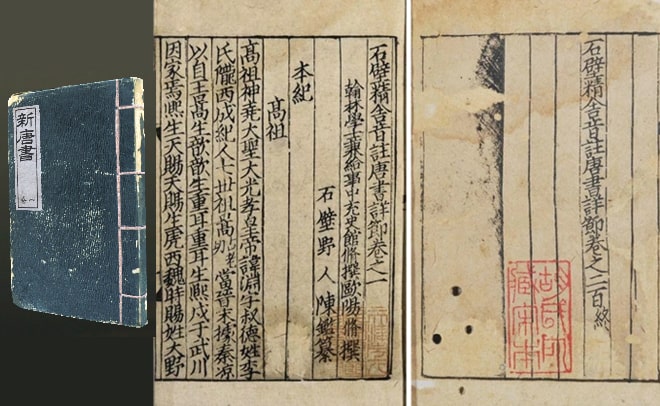 新唐書
石壁精舍音註唐書詳節卷之一
翰林學士兼給事中充史館脩撰歐陽脩撰
石壁野人陳鑑纂
本紀
高祖
高祖神堯大聖大光孝皇帝諱淵字叔德姓李
氏隴西成紀人七世祖暠古老切當晉末據秦涼
以自王暠生歆歆生重耳重耳生熙戍于武川
因家焉熙生天賜天賜生虎西魏時賜姓大野
石壁精舍音註唐書詳節卷之二百終